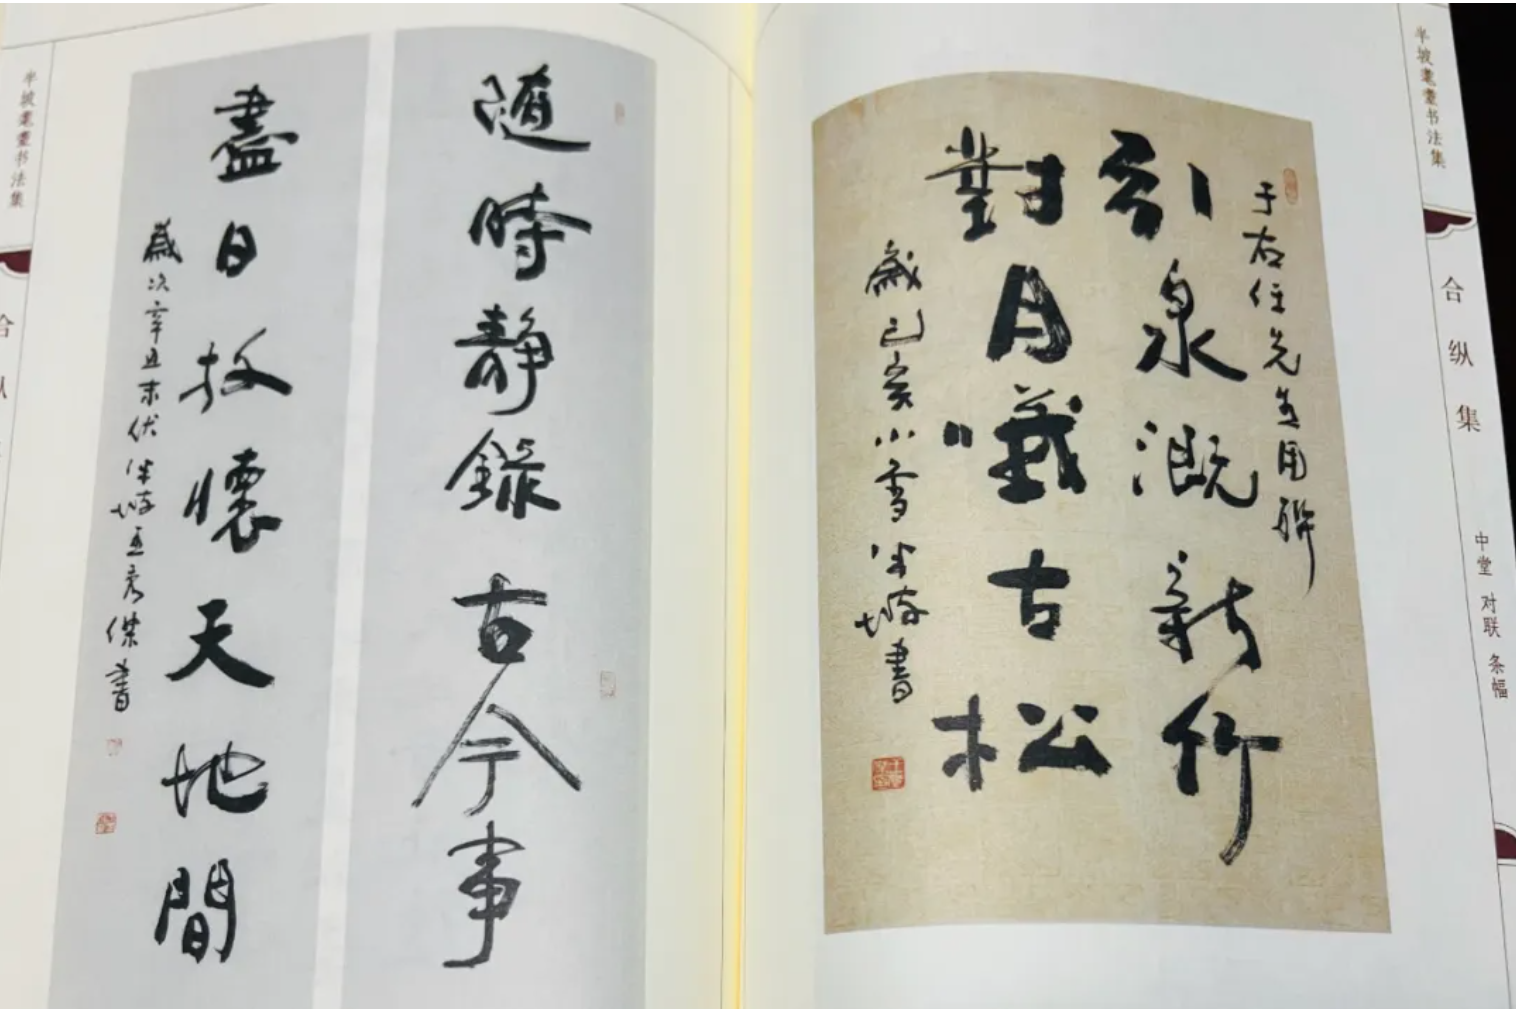 半坡耄耋书法集
随時靜錄古今事
盡日放懷天地間
歲次辛丑末伏半坡王傑書
于右任先生用聯
引泉溉新竹
對月古松
歲己亥小雪半坡書
半坡耄耋书法集
合纵集
中堂 对联 条幅